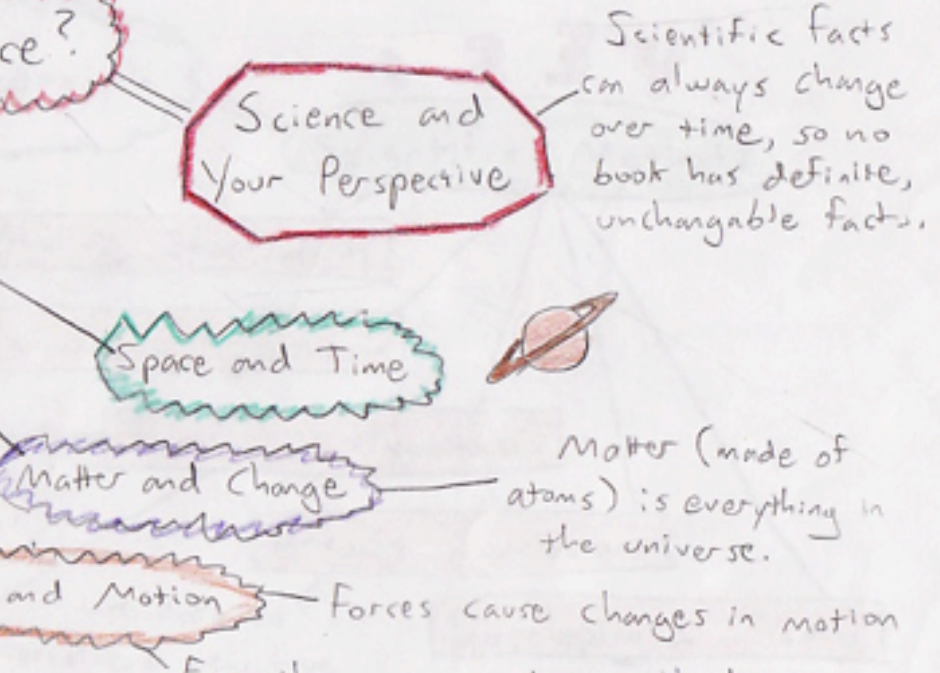 ce?
Science and
Your Perspective
Scientific facts
can always change
over time, so no
book has definite,
unchangable facts.
Space and Time
Matter and Change
Matter (made of
atoms) is everything in
the universe.
and Motion
Forces cause changes in motion